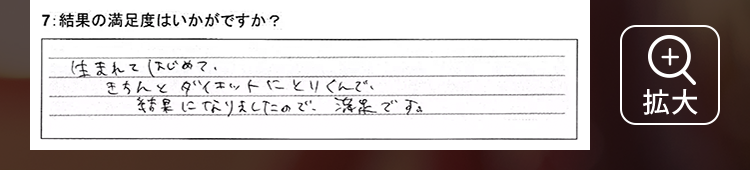 7：結果の満足度はいかがですか？
生まれてはじめて、
きちんとダイエットにとりくんで、
結果になりましたので、満足です。
拡大